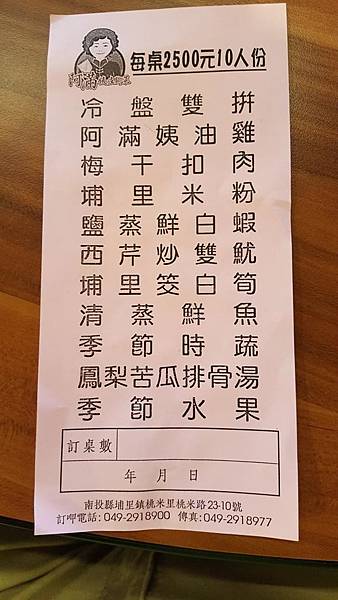 阿滿
每桌2500元10人份
冷盤雙拼
阿滿姨油雞
梅干扣肉
埔里米粉
鹽蒸鮮白蝦
西芹炒雙魷
埔里筊白筍
清蒸鮮魚
季節時蔬
鳳梨苦瓜排骨湯
季節水果
訂桌數
年 月 日
南投縣埔里鎮桃米里桃米路23-10號
訂呷電話:049-2918900 傳真:049-2918977